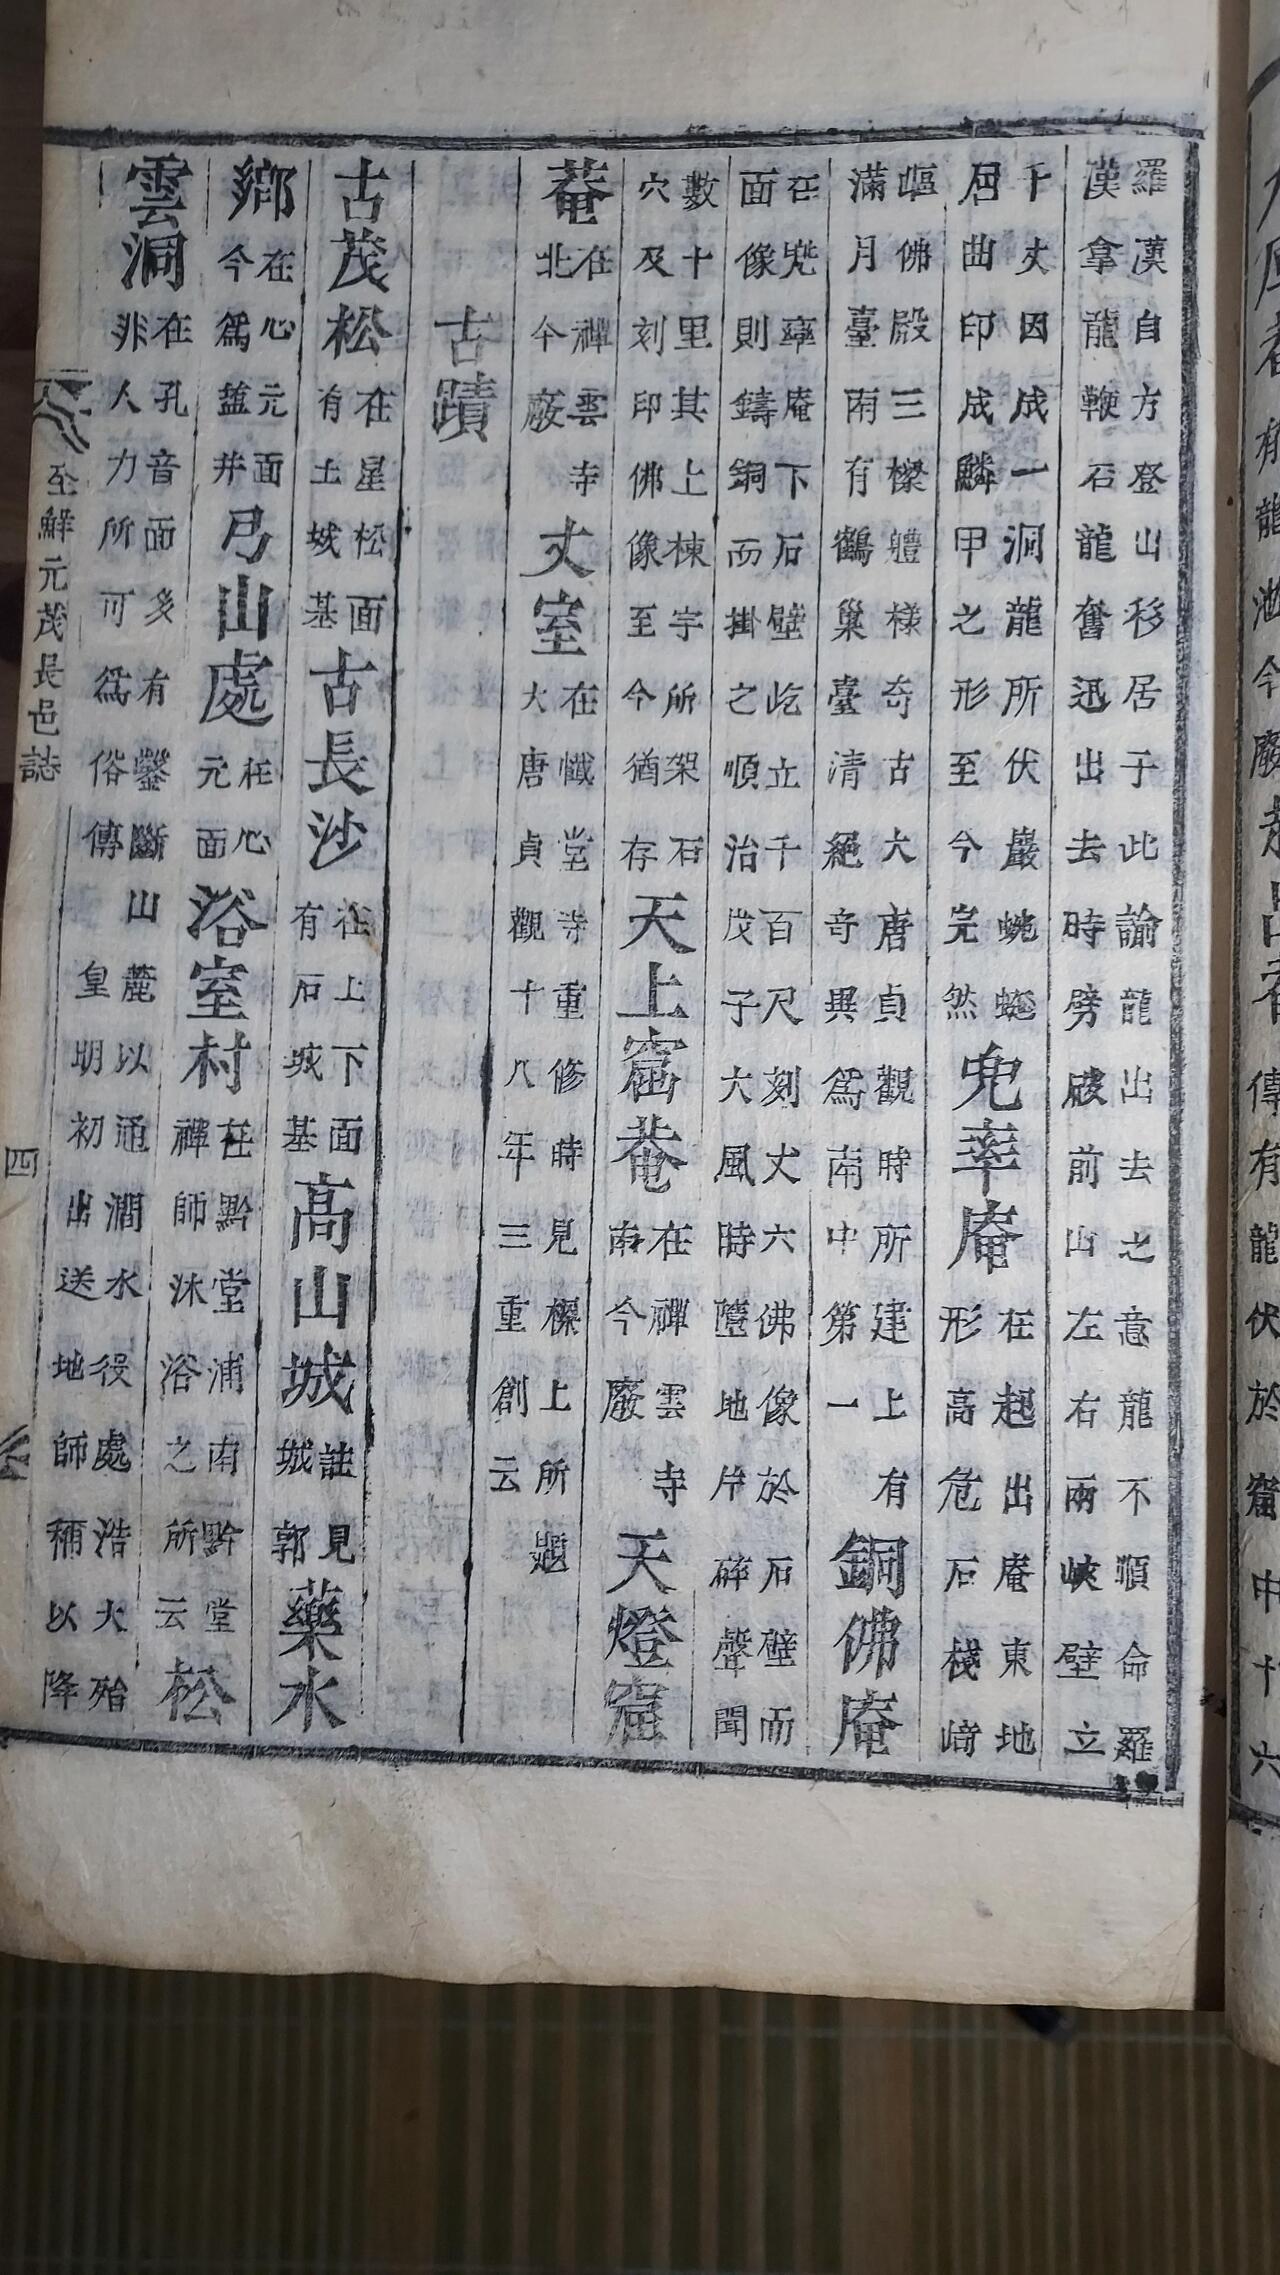 羅漢自方登山移居于此諭龍出去之意龍不順命羅
漢拿龍鞭石龍奮迅出去時劈破前山左右兩峽壁立
千丈因成一洞龍所伏巖蜿蜒
屈曲印成鱗甲之形至今完然
兜率庵
在起出庵東地
形高危石棧﨑
嶇佛殿三樑軆樣奇古大唐貞觀時所建上有
滿月臺南有鶴巢臺清絕奇異爲南中第一
銅佛庵
在兠率庵下石壁屹立千百尺刻丈六佛像於石壁而
面像則鑄銅而掛之順治戊子大風時墮地片碎聲聞
數十里其上棟宇所架石
穴及刻印佛像至今猶存
天上窟菴
在禪雲寺
南今廢
天燈窟
菴
在禪雲寺
北今廢
丈室
在懺堂寺重修時見樑上所題
大唐貞觀十八年三重創云
古蹟
古茂松
在星松面
有土城基
古長沙
在上下面
有石城基
高山城
註見
城郭
藥水
鄕
在心元面
今爲益井
弓山處
在心
元面
浴室村
在黔堂浦南黔堂
禪師沐浴之所云
松
雲洞
在孔音面多有鑿斷山麓以通澗水役處浩大殆
非人力所可爲俗傳皇明初出送地師稱以降
至鮮元茂長邑誌
四